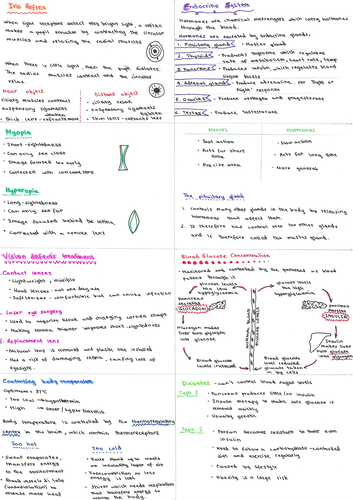 Iris Reflex
When light receptors detect very bright light, a reflex
makes a pupil smaller by contracting the circular
muscles and relaxing the radial muscles
When there is little light then the pupil dilates.
The radial muscles contract and the circular
relax.
Near object
Ciliary muscles contract
Suspensory ligaments
Thick lens - refracts more
Distant object
Ciliary relax
Suspensory ligaments
tighten
Thin lens - refracts less
Endocrine System
Hormones are chemical messengers which carry hormones
through the blood.
Hormones are secreted by endocrine glands:
1. Pituitary gland - Master gland
2. Thyroid - Produces thyroxine which regulates
rate of metabolism, heart rate, temp
3. Pancreas - Produces insulin which regulates blood
sugar levels
4. Adrenal glands - Produce adrenaline, for 'Fight or
flight' response
5. Ovaries - Produce oestrogen and progesterone
6. Testes - Produce testosterone
Myopia
- Short-sightedness
- Can only see close
- Image focused too early
- Corrected with concave lens
Hyperopia
- Long-sightedness
- Can only see far
- Image focused behind the retina
- Corrected with a convex lens
Nerves
- Fast action
- Acts for short
time
- Precise area
Hormones
- Slow action
- Acts for long time
- More general
The pituitary gland
1. Controls many other glands in the body by releasing
hormones that affect them.
2. It therefore had control over the other glands
and is therefore called the master gland.
Vision defects treatments
1. Contact lenses
- Lightweight, invisible
- Hard lenses - not one day use
- Soft lenses - comfortable but can cause infection
2. Laser eye surgery
- Used to vaporise tissue and changing cornea shape
- Making cornea thinner improves short-sightedness
3. Replacement lens
- Natural lens is removed and plastic one installed
- Has a risk of damaging retina, causing loss of
eyesight.
Blood Glucose Concentration
- Monitored and controlled by the pancreas as blood
passes through it
glucose levels
too low
hypoglycaemia
pancreas
secretes
GLUCAGON
Glucagon makes
liver turn glycogen
into glucose
Blood glucose
levels increased
BLOOD
glucose levels
too high
hyperglycaemia
pancreas
secretes
INSULIN
Insulin makes
liver turn
glucose into
glycogen
Blood glucose
levels reduced
glucose taken
in by cells
Controlling body temperature
Optimum = 37°C
- Too low → hypothermia
- High → fever / hyperthermia
Body temperature is controlled by the thermoregulatory
centre in the brain, which contains thermoreceptors
Too hot
- Sweat evaporates,
transfers energy
to the environment
- Blood vessels dilate
(vasodilation) to
release more heat
Too cold
- Hairs stand up to create
an insulating layer of air
- Vasoconstriction so less
energy is lost
- Shiver which needs respiration
that transfers energy to
warm the body
Diabetes - can't control blood sugar levels
Type 1
- Pancreas produces little/no insulin
- Insulin therapy to make sure glucose is
removed quickly
- Usually genetic
Type 2
- Person becomes resistant to their own
insulin
- Need to follow a carbohydrate-controlled
diet and exercise regularly
- Caused by lifestyle
- Obesity is a large risk